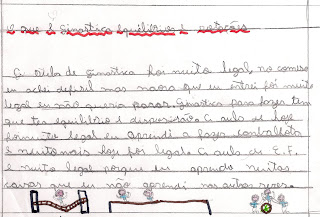 O que é Ginastica Equilíbrios e rotações
A aula de ginastica foi muito legal, no começo
eu achei dificil mas na ora que eu entrei foi muito
legal eu não queria parar. Ginastica para fazer tem
que ter equilíbrio e disposisão. A aula de hoje
foi muito legal eu aprendi a fazer cambalhota
e muito mais hoje foi legal. A aula de E.F.
é muito legal porque eu aprendo muitas
coisas que eu não aprendi nas outras series.